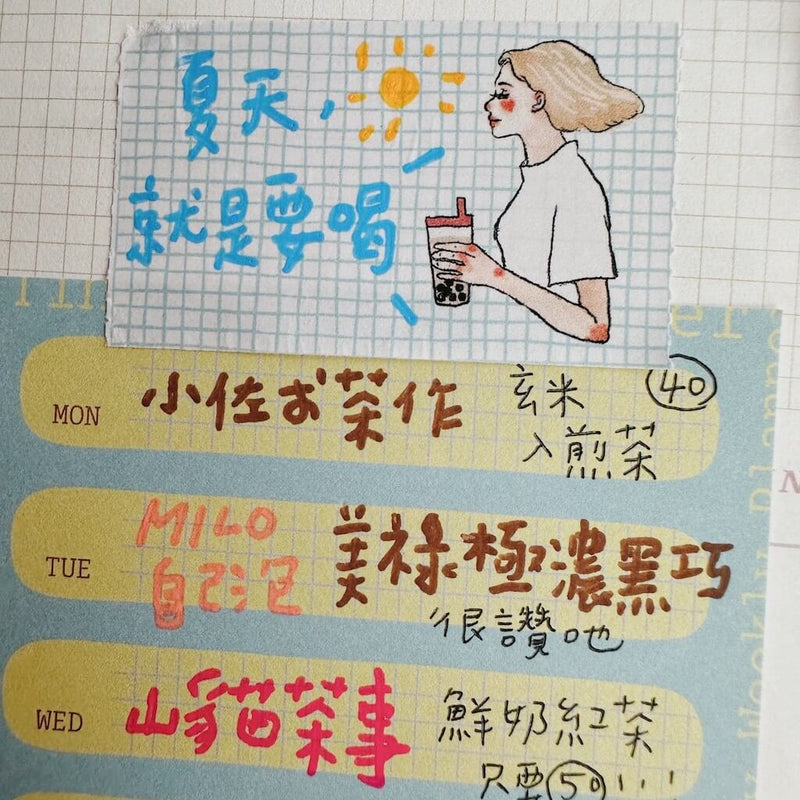 夏天，
就是要喝
MON 小佐お茶作 玄米 40
入煎茶
TUE MILO 美祿極濃黑巧
自己泡
很讚吔
WED 山貓茶事 鮮奶紅茶
只要50
Weekly Planner